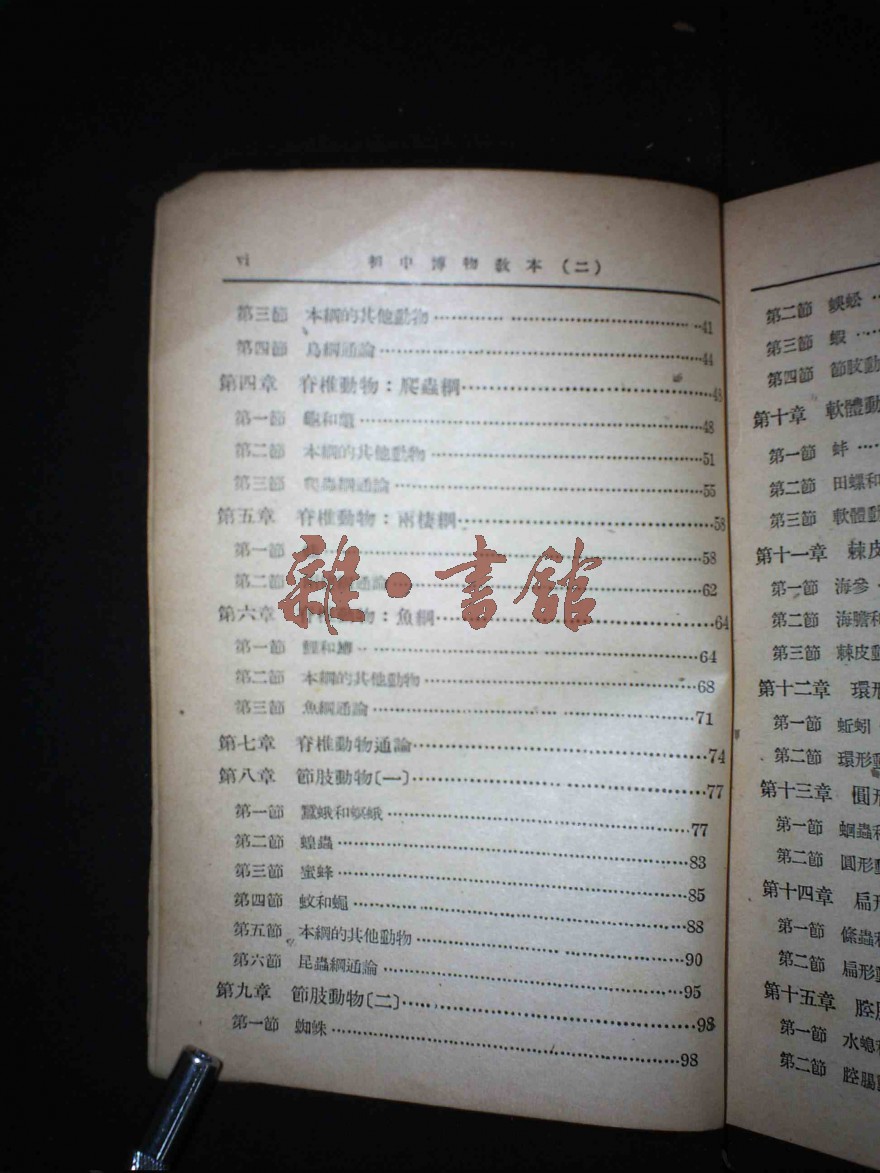 vi 初中博物教本(二)
第三節 本綱的其他動物 41
第四節 鳥綱通論 44
第四章 脊椎動物：爬蟲綱 48
第一節 龜和 48
第二節 本綱的其他動物 51
第三節 爬蟲綱通論 55
第五章 脊椎動物：兩棲綱 58
第一節 58
第二節 通論 62
第六章 動物：魚綱 64
第一節 鯉和 64
第二節 本綱的其他動物 68
第三節 魚綱通論 71
第七章 脊椎動物通論 74
第八章 節肢動物〔一〕 77
第一節 蠶蛾和螟蛾 77
第二節 蝗蟲 83
第三節 蜜蜂 85
第四節 蚊和蠅 88
第五節 本綱的其他動物 90
第六節 昆蟲綱通論 95
第九章 節肢動物〔二〕 98
第一節 蜘蛛 98
雜·書館
第二節 蜈蚣
第三節 蝦
第四節 節肢動
第十章 軟體動
第一節 蚌
第二節 田螺和
第三節 軟體動
第十一章 棘皮
第一節 海參
第二節 海膽和
第三節 棘皮動
第十二章 環形
第一節 蚯蚓
第二節 環形動
第十三章 圓形
第一節 蛔蟲和
第二節 圓形動
第十四章 扁形
第一節 條蟲和
第二節 扁形動
第十五章 腔腸
第一節 水螅和
第二節 腔腸動